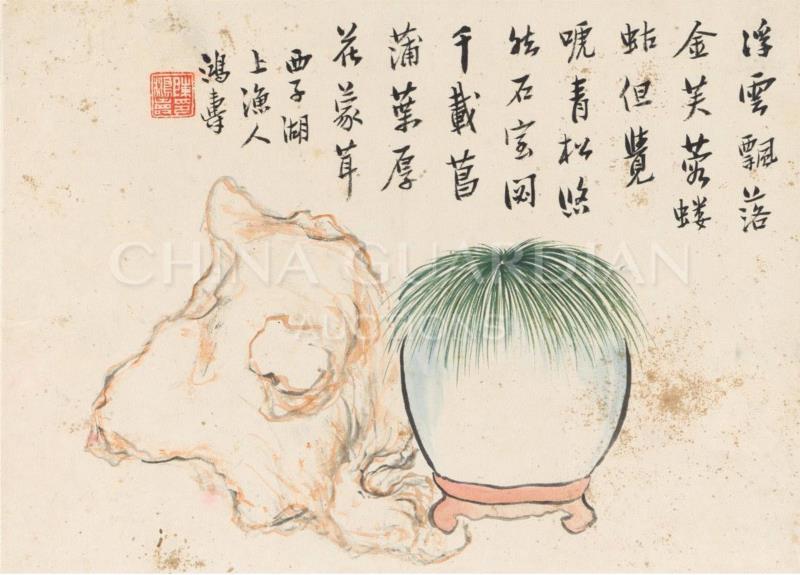 浮雲飄落
金芙蓉螻
蛄但覺
號青松悠
然石室
千載菖
蒲葉厚
花蒙茸
西子湖
上漁人
鴻壽
陳印鴻壽
CHINA GUARDIAN
AUCTIONS